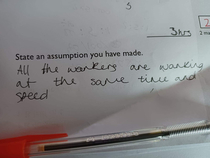 5
3hrs
2
State an assumption you have made.
All the workers are working
at the same time and
speed